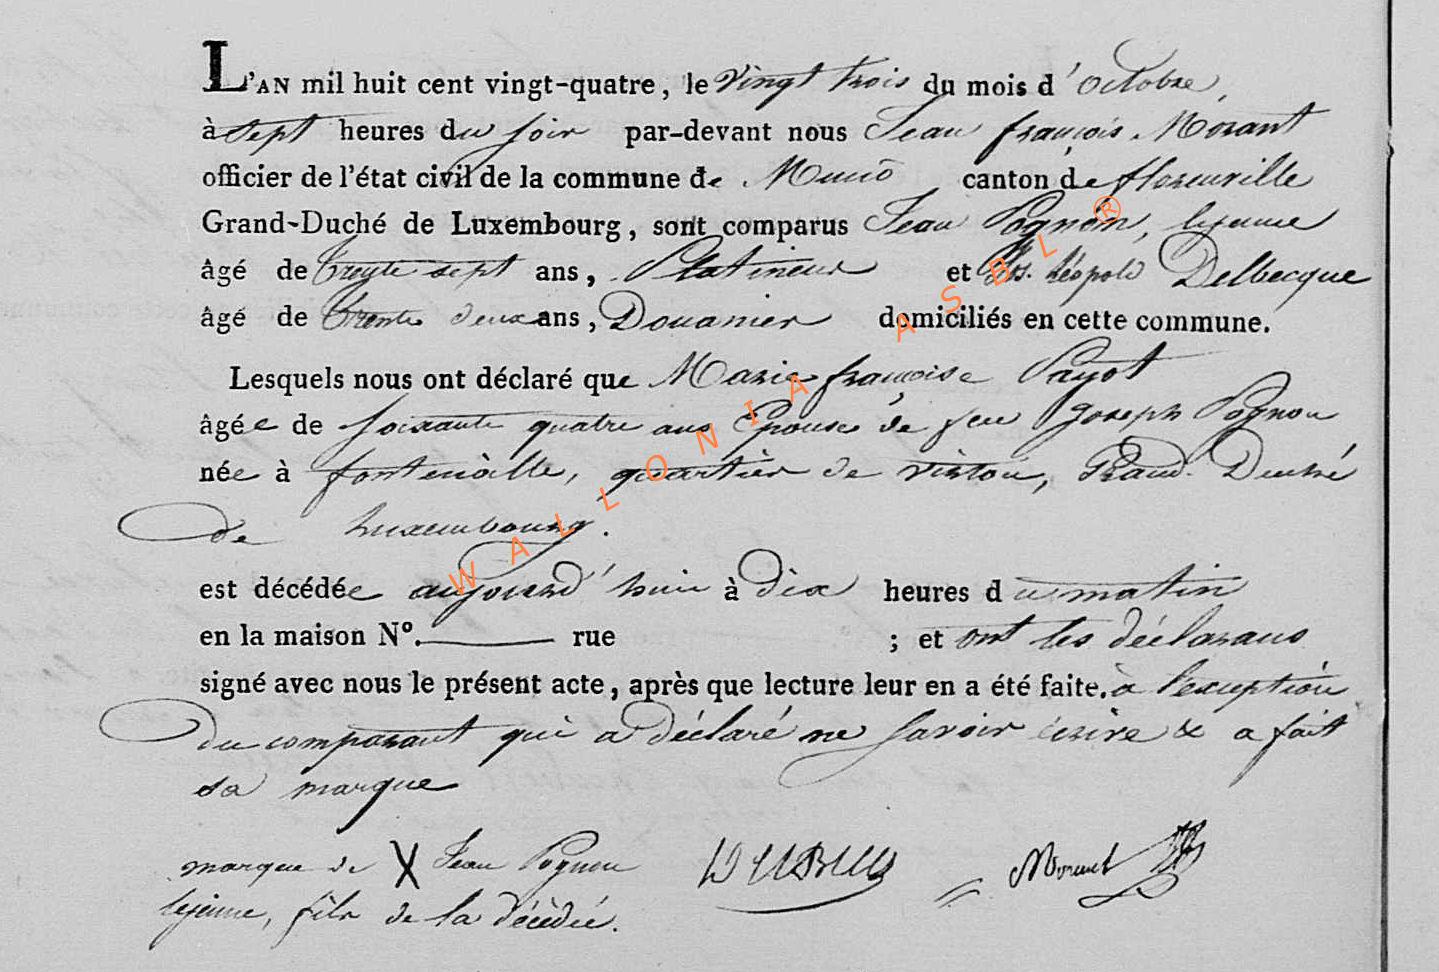 L'AN mil huit cent vingt-quatre, le vingt trois du mois d'octobre,
à sept heures du soir par-devant nous Jean françois Morant
officier de l'état civil de la commune de Muno canton de florenville
Grand-Duché de Luxembourg, sont comparus Jean Pognon, lejeune
âgé de trente sept ans, Platineur et Léopold Delbecque
âgé de trente deux ans, Douanier domiciliés en cette commune.
Lesquels nous ont déclaré que Marie françoise Payot
âgée de soixante quatre ans Epouse de feu Joseph Pognon
née à fontenoille, quartier de virton, Grand Duché
de Luxembourg.
est décédée aujourd'huie à dix heures du matin
en la maison N°. rue ; et ont les déclarans
signé avec nous le présent acte, après que lecture leur en a été faite, à l'exception
du comparant qui a déclaré ne savoir écrire & a fait
sa marque
marque de X Jean Pognon
lejeune, fils de la décédée.
Morant
WALLONIA ASBL ®